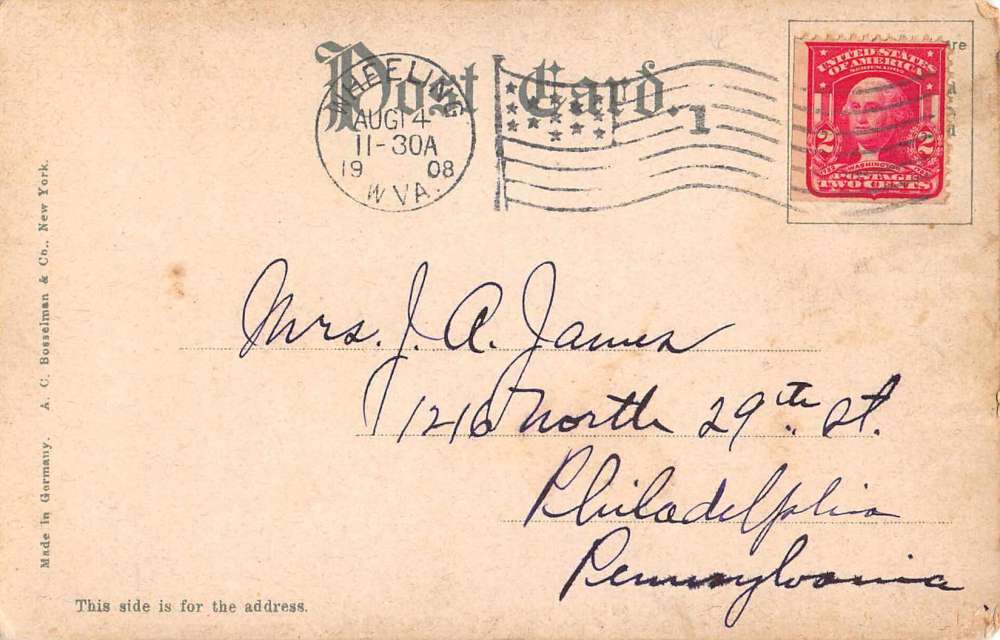 Post Card.
WHEELING
AUG 14
11-30A
1908
W VA.
1
UNITED STATES
OF AMERICA
SERIES 1902
2 2
WASHINGTON
POSTAGE
TWO CENTS
Mrs. J. A. James
1216 North 29th St.
Philadelphia
Pennsylvania
Made in Germany. A. C. Bosselman & Co., New York.
This side is for the address.